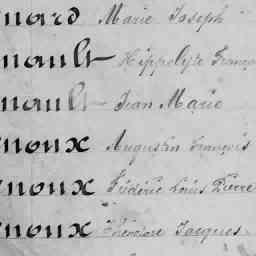 nard Marie Joseph
nault Hippolyte Franço
nault Jean Marie
noux Augustin François
noux Frédéric Louis Pierre
noux Théodore Jacques